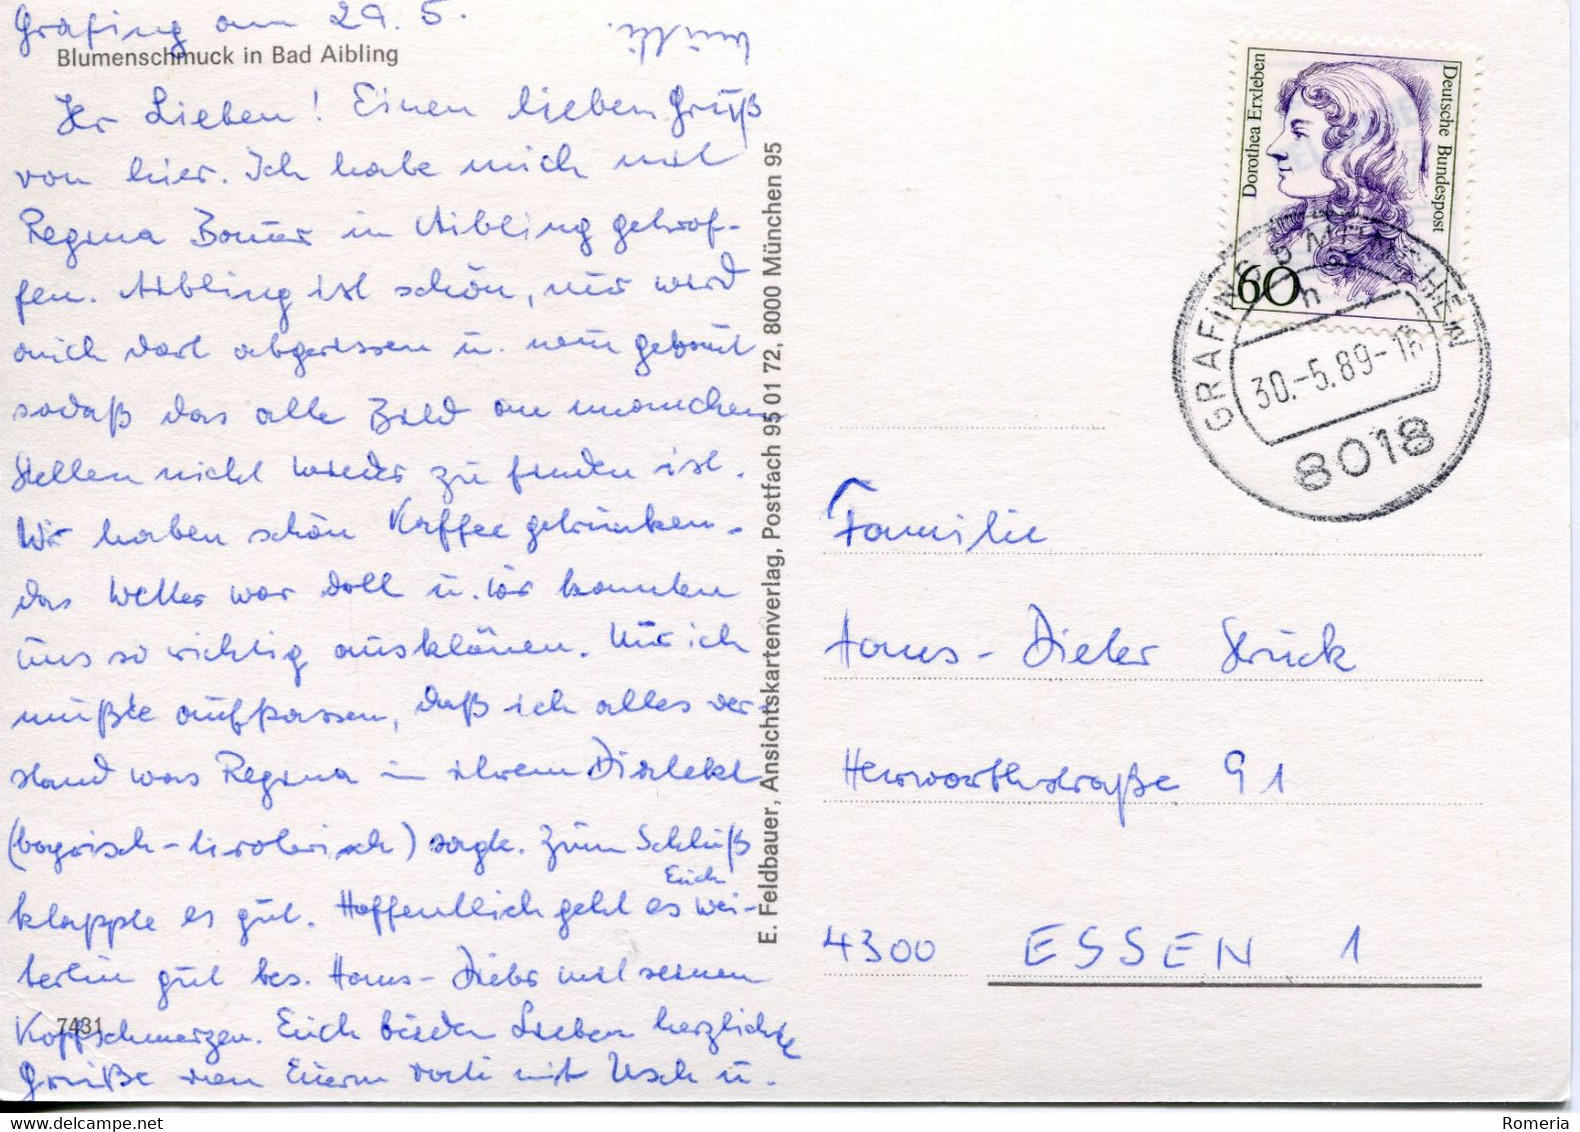 Grafing am 29. 5.
Blumenschmuck in Bad Aibling
Ihr Lieben! Einen lieben Gruß
von hier. Ich habe mich mit
Regina Bauer in Aibling getrof-
fen. Aibling ist schön, nur wird
auch dort abgerissen u. neu gebaut
sodaß das alte Bild an manchen
Stellen nicht wieder zu finden ist.
Wir haben schön Kaffee getrunken.
das Wetter war doll u. wir konnten
uns so richtig ausklönen. Nur ich
mußte aufpassen, daß ich alles ver-
stand was Regina in ihrem Dialekt
(bayrisch-tirolerisch) sagte. Zum Schluß
klappte es gut. Hoffentlich geht es Euch wei-
terhin gut bes. Hans-Dieter mit seinen
Kopfschmerzen. Euch beiden Lieben herzliche
Grüße von Eurem mit Usch u.
Mutti.
7431
E. Feldbauer, Ansichtskartenverlag, Postfach 95 01 72, 8000 München 95
Dorothea Erxleben
Deutsche Bundespost
60
GRAFING B MÜNCHEN
30.-5.89-
8018
Familie
Hans-Dieter Struck
Herwarthstraße 91
4300 ESSEN 1
Romeria